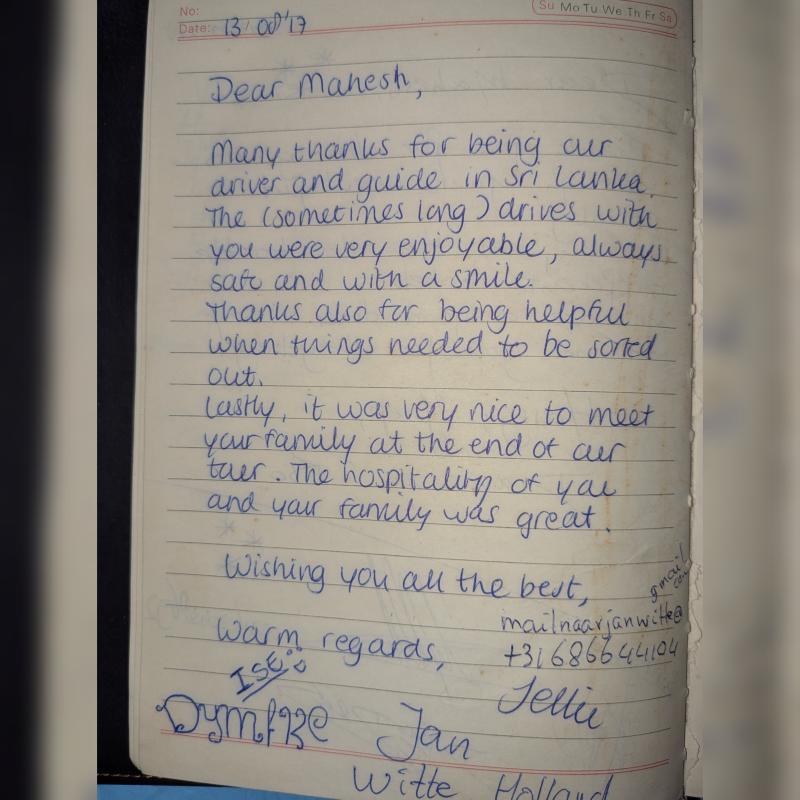 No:
Su Mo Tu We Th Fr Sa
Date: 13/08/17
Dear Mahesh,
Many thanks for being our
driver and guide in Sri Lanka.
The (sometimes long) drives with
you were very enjoyable, always
safe and with a smile.
Thanks also for being helpful
when things needed to be sorted
out.
Lastly, it was very nice to meet
your family at the end of our
tour. The hospitality of you
and your family was great.
Wishing you all the best,
Warm regards,
mailnaarjanwitte@
gmail
com
+31686644104
ISE
Jellie
Dymfke
Jan
Witte Holland